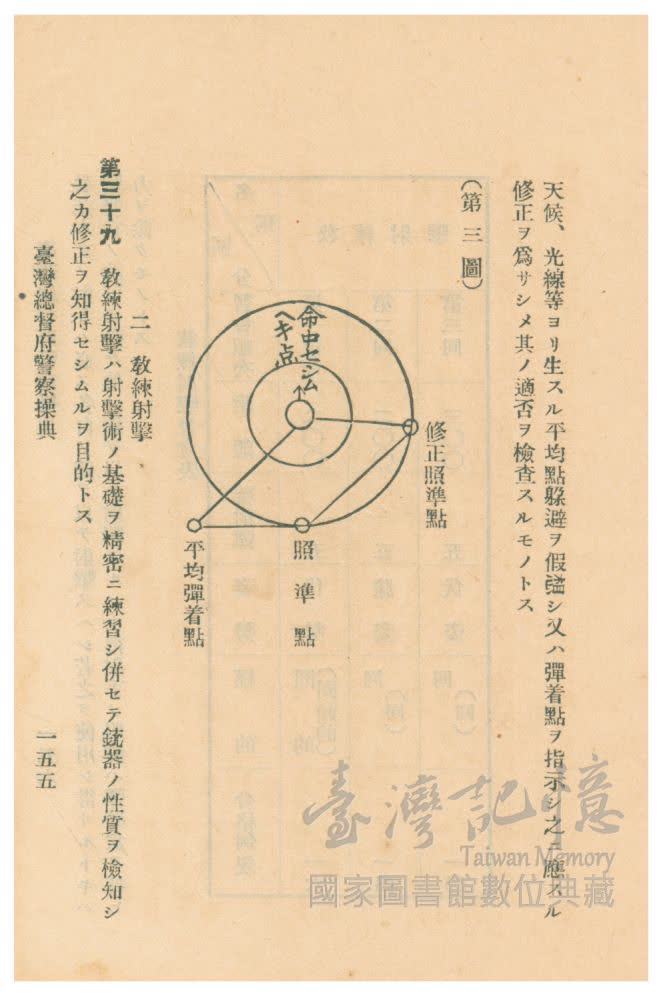 天候、光線等ヨリ生スル平均點躱避ヲ假諡シ又ハ彈着點ヲ指示シ之ニ應スル
修正ヲ爲サシメ其ノ適否ヲ檢査スルモノトス
(第三圖)
命中セシム
ヘキ点
修正照準點
照準點
平均彈着點
二 敎練射擊
第三十九 敎練射擊ハ射擊術ノ基礎ヲ精密ニ練習シ併セテ銃器ノ性質ヲ檢知シ
之カ修正ヲ知得セシムルヲ目的トス
臺灣總督府警察操典
一五五
臺灣記憶
Taiwan Memory
國家圖書館數位典藏